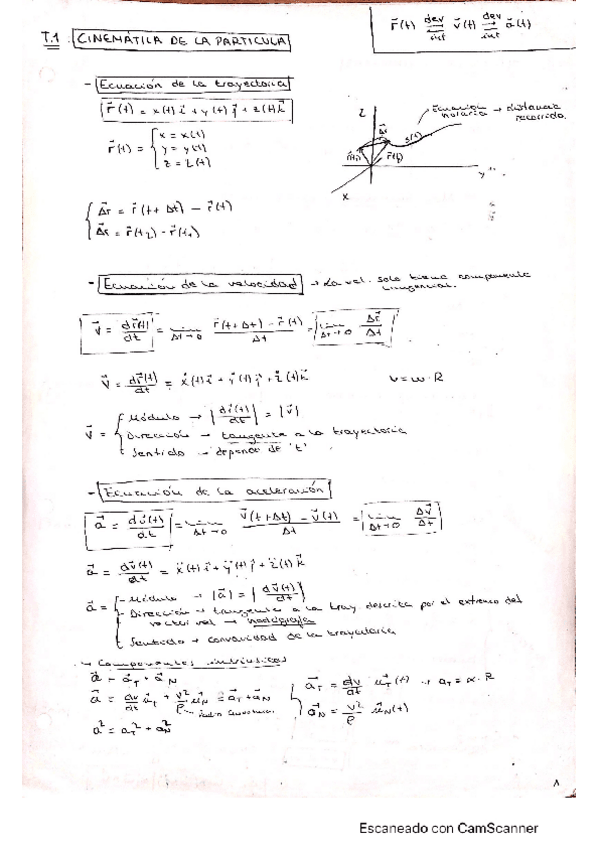 T.1. CINEMÁTICA DE LA PARTICULA
r⃗(t) dev ⇌ int v⃗(t) dev ⇌ int a⃗(t)
- Ecuación de la trayectoria
r⃗(t) = x(t) i⃗ + y(t) j⃗ + z(t) k⃗
r⃗(t) = { x = x(t)
y = y(t)
z = z(t)
z
Δr⃗
r⃗(t₁)
r⃗(t₂)
s(t)
x
y
Ecuación horaria → distancia recorrida.
{ Δr⃗ = r⃗(t + Δt) - r⃗(t)
Δr⃗ = r⃗(t₂) - r⃗(t₁)
- Ecuación de la velocidad → La vel. solo tiene componente tangencial.
v⃗ = dr⃗(t)/dt = lim Δt→0 r⃗(t+Δt) - r⃗(t)/Δt = lim Δt→0 Δr⃗/Δt
v⃗ = dr⃗(t)/dt = ẋ(t) i⃗ + ẏ(t) j⃗ + ż(t) k⃗
v = w · R
v⃗ = { Módulo → |dr⃗(t)/dt| = |v⃗|
Dirección → tangente a la trayectoria
Sentido → depende de 't'
- Ecuación de la aceleración
a⃗ = dv⃗(t)/dt = lim Δt→0 v⃗(t+Δt) - v⃗(t)/Δt = lim Δt→0 Δv⃗/Δt
a⃗ = dv⃗(t)/dt = ẍ(t) i⃗ + ÿ(t) j⃗ + z̈(t) k⃗
a⃗ = { - Módulo → |a⃗| = |dv⃗(t)/dt|
- Dirección → tangente a la tray. descrita por el extremo del
vector vel → hodógrafa
Sentido → concavidad de la trayectoria
→ Componentes intrínsecas
a⃗ = a⃗T + a⃗N
a⃗ = dv/dt u⃗T + v²/ρ u⃗N = a⃗T + a⃗N
→ radio curvatura
a² = aT² + aN²
{ a⃗T = dv/dt u⃗T(t) → aT = α · R
a⃗N = v²/ρ u⃗N(t)
Escaneado con CamScanner